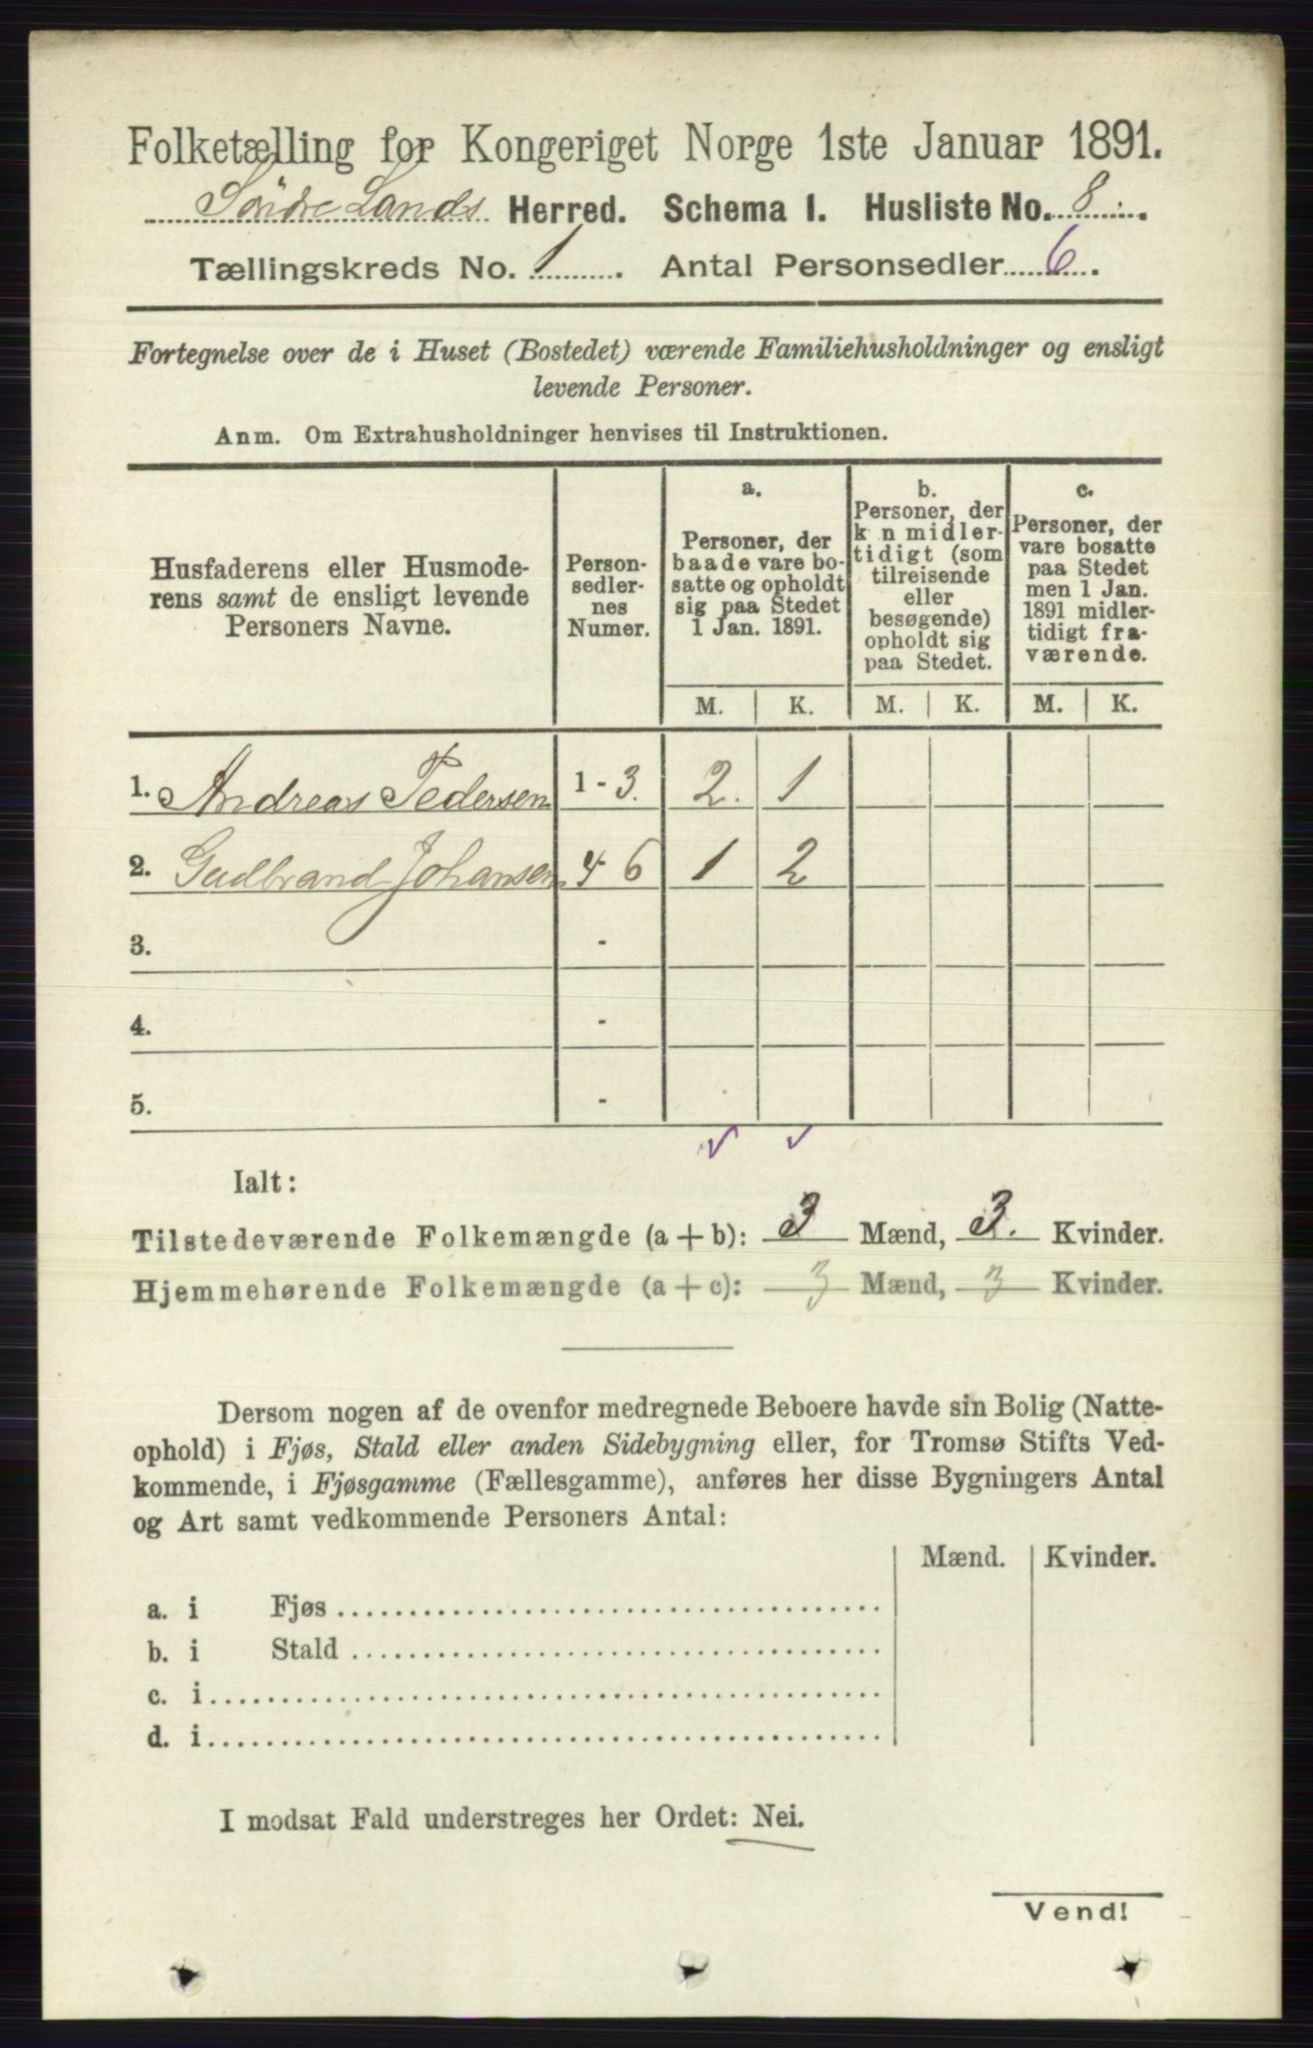 Folketælling for Kongeriget Norge 1ste Januar 1891.
Söndre Lands Herred. Schema I. Husliste No. 8.
Tællingskreds No. 1. Antal Personsedler 6.
Fortegnelse over de i Huset (Bostedet) værende Familiehusholdninger og ensligt
levende Personer.
Anm. Om Extrahusholdninger henvises til Instruktionen.
Husfaderens eller Husmode-
rens samt de ensligt levende
Personers Navne.
Person-
sedler-
nes
Numer.
a.
Personer, der
baade vare bo-
satte og opholdt
sig paa Stedet
1 Jan. 1891.
b.
Personer, der
k n midler-
tidigt (som
tilreisende
eller
besøgende)
opholdt sig
paa Stedet.
c.
Personer, der
vare bosatte
paa Stedet
men 1 Jan.
1891 midler-
tidigt fra-
værende.
M. K. M. K. M. K.
1. Andreas Pedersen 1 - 3. 2. 1
2. Gudbrand Johansen 4 6 1 2
3. -
4. -
5. -
Ialt:
Tilstedeværende Folkemængde (a + b): 3 Mænd, 3. Kvinder.
Hjemmehørende Folkemængde (a + c): 3 Mænd, 3 Kvinder.
Dersom nogen af de ovenfor medregnede Beboere havde sin Bolig (Natte-
ophold) i Fjøs, Stald eller anden Sidebygning eller, for Tromsø Stifts Ved-
kommende, i Fjøsgamme (Fællesgamme), anføres her disse Bygningers Antal
og Art samt vedkommende Personers Antal:
Mænd. Kvinder.
a. i Fjøs
b. i Stald
c. i
d. i
I modsat Fald understreges her Ordet: Nei.
Vend!